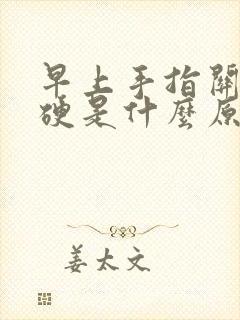 早上手指關
硬是什麼原
姜太文